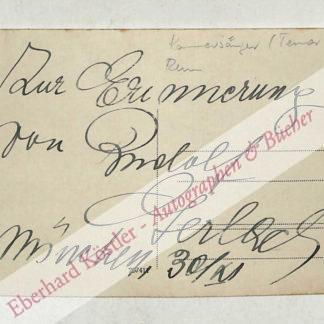 Kammersänger / Tenor
Zur Erinnerung
von Rudolf
Gerlach
München 30/
Eberhard Köstler - Autographen & Bücher